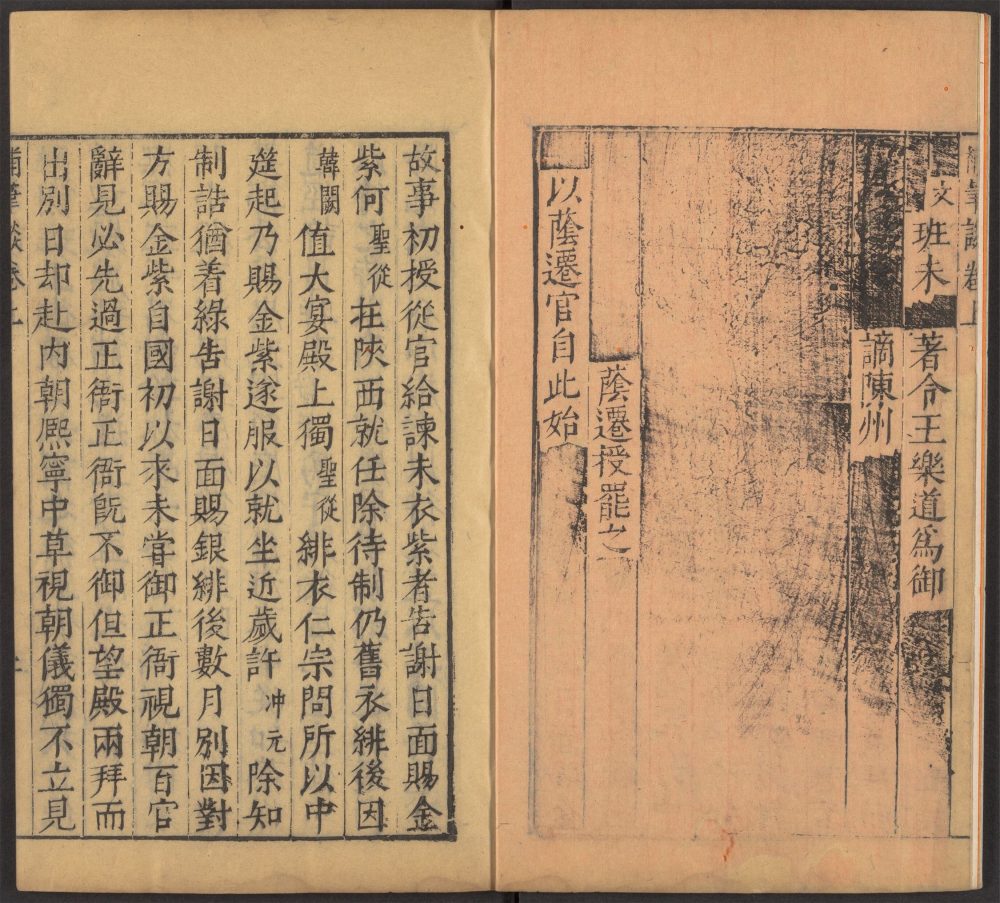 補筆談卷上
文班未 著令王樂道為御
謫陳州
蔭遷授罷之
以蔭遷官自此始
故事初授從官給諫未衣紫者告謝日面賜金
紫何聖從在陝西就任除待制仍舊衣緋後因
韓闕值大宴殿上獨聖從緋衣仁宗問所以中
筵起乃賜金紫遂服以就坐近歲許冲元除知
制誥猶着綠告謝日面賜銀緋後數月別因對
方賜金紫自國初以來未嘗御正衙視朝百官
辭見必先過正衙正衙旣不御但望殿兩拜而
出別日却赴内朝熈寧中草視朝儀獨不立見
補筆談卷上